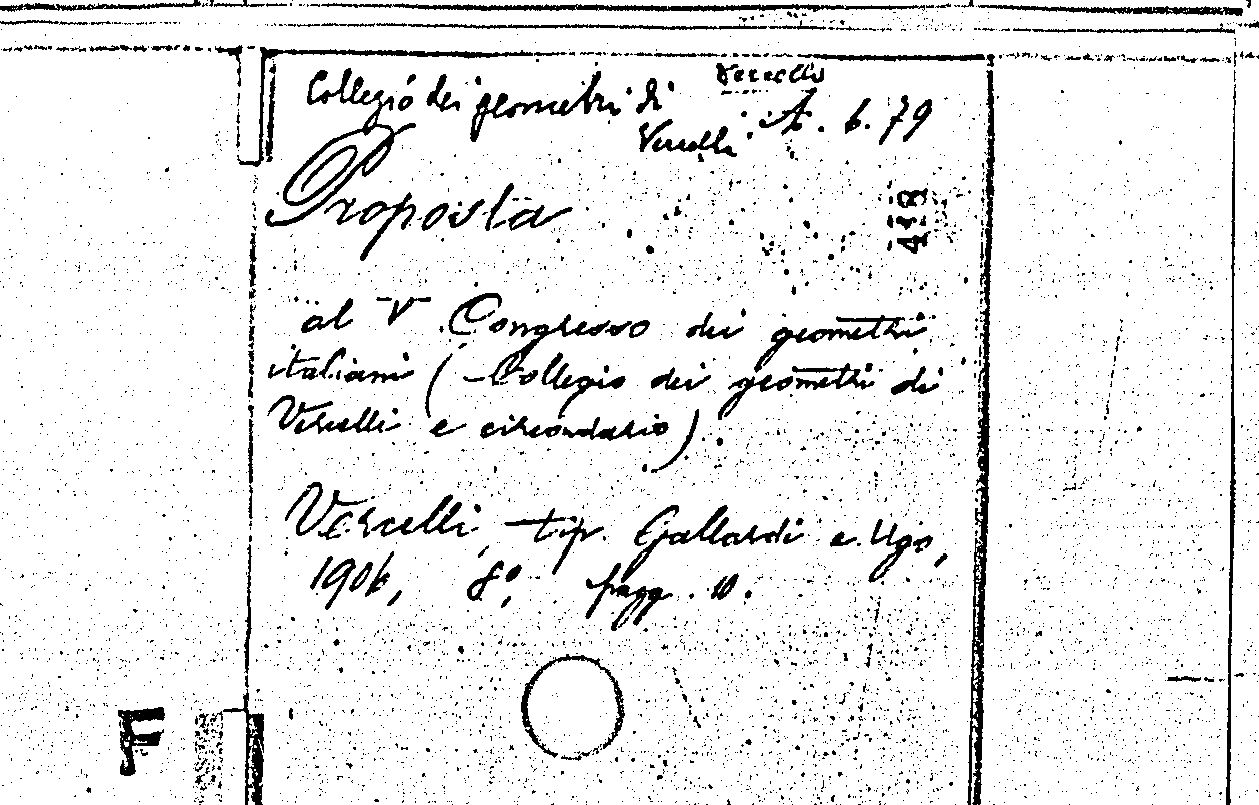 Vercelli
Collegio dei geometri di
Vercelli. A. 6. 79
Proposta
418
al V Congresso dei geometri
italiani (Collegio dei geometri di
Vercelli e circondario).
Vercelli, tip. Gallardi e Ugo,
1906, 8°, pagg. 10.
F